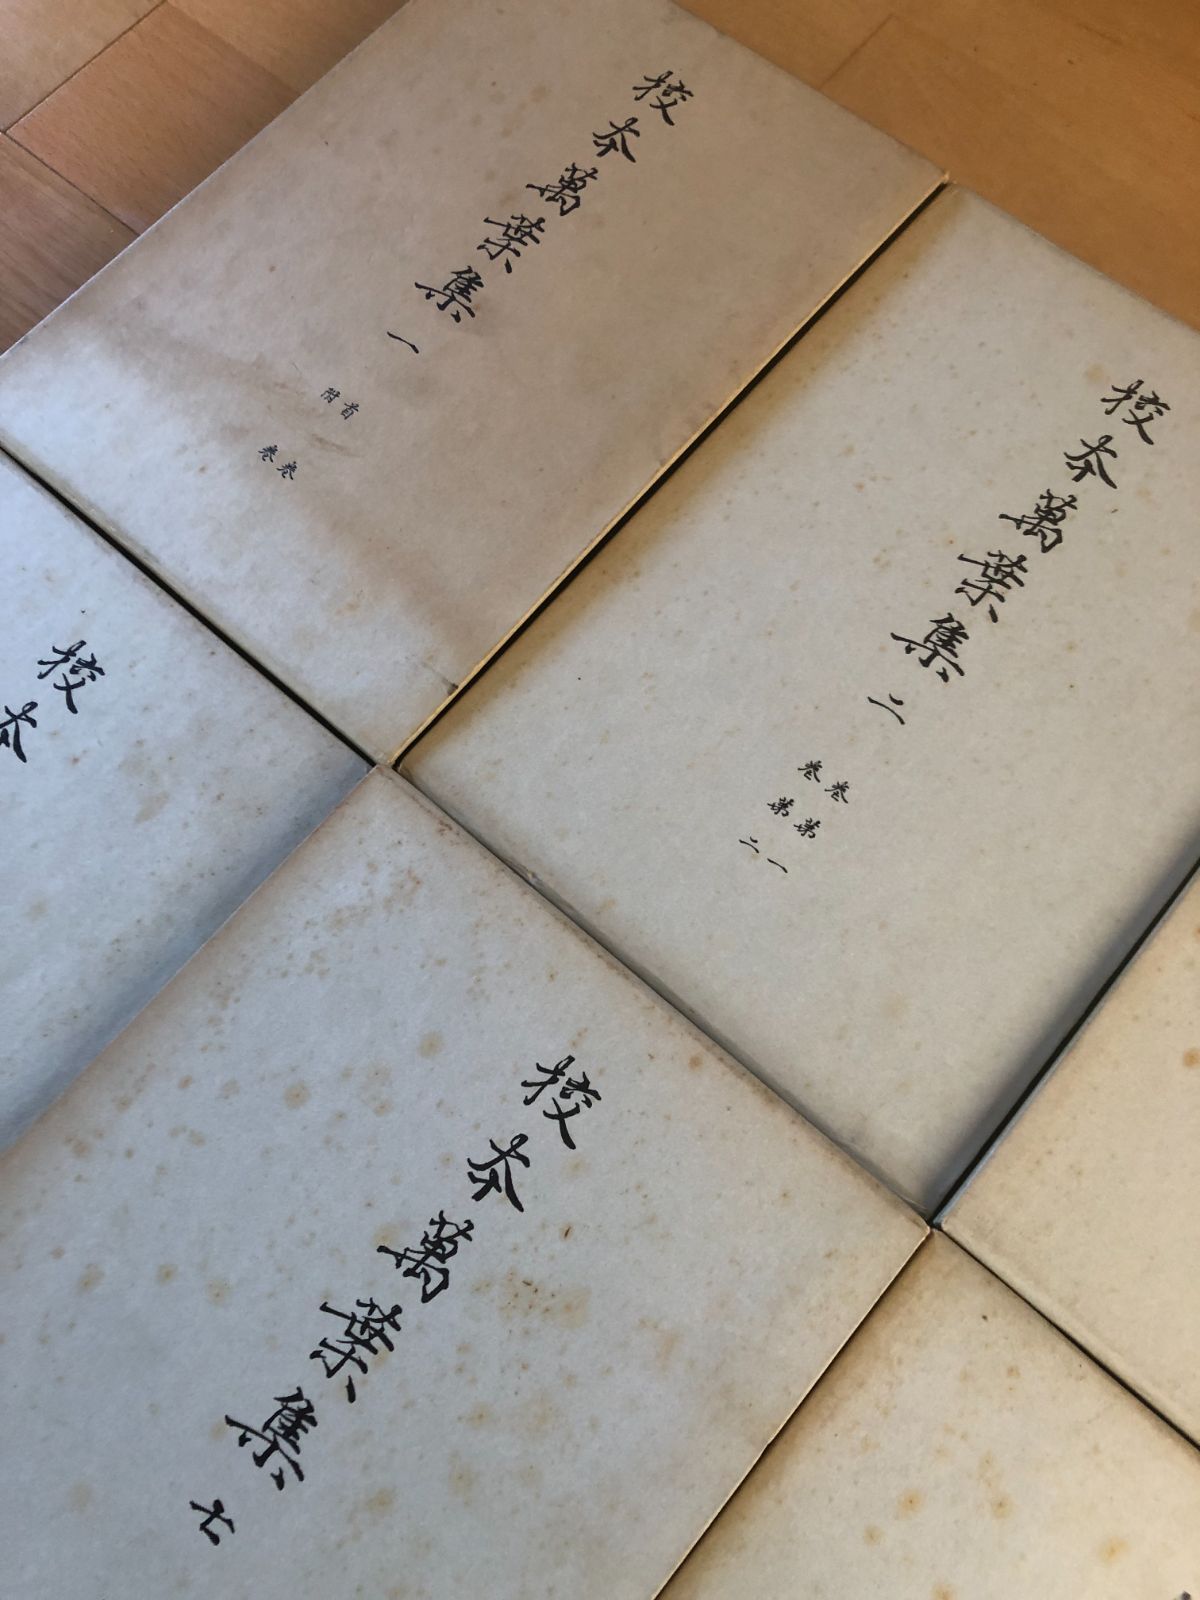 校本萬葉集 一
首卷
附卷
校本萬葉集 二
卷第一
卷第二
校本
校本萬葉集 七